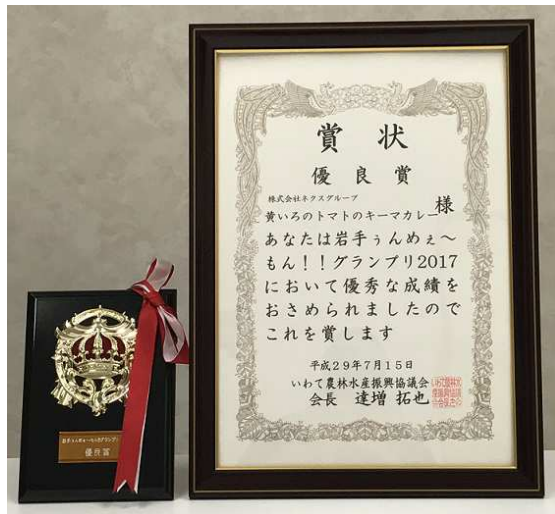 賞状
優良賞
株式会社ネクスグループ
黄いろのトマトのキーマカレー様
あなたは岩手ぅんめぇ～
もん！！グランプリ2017
において優秀な成績を
おさめられましたので
これを賞します
平成29年7月15日
いわて農林水産振興協議会
会長 達増 拓也
優良賞